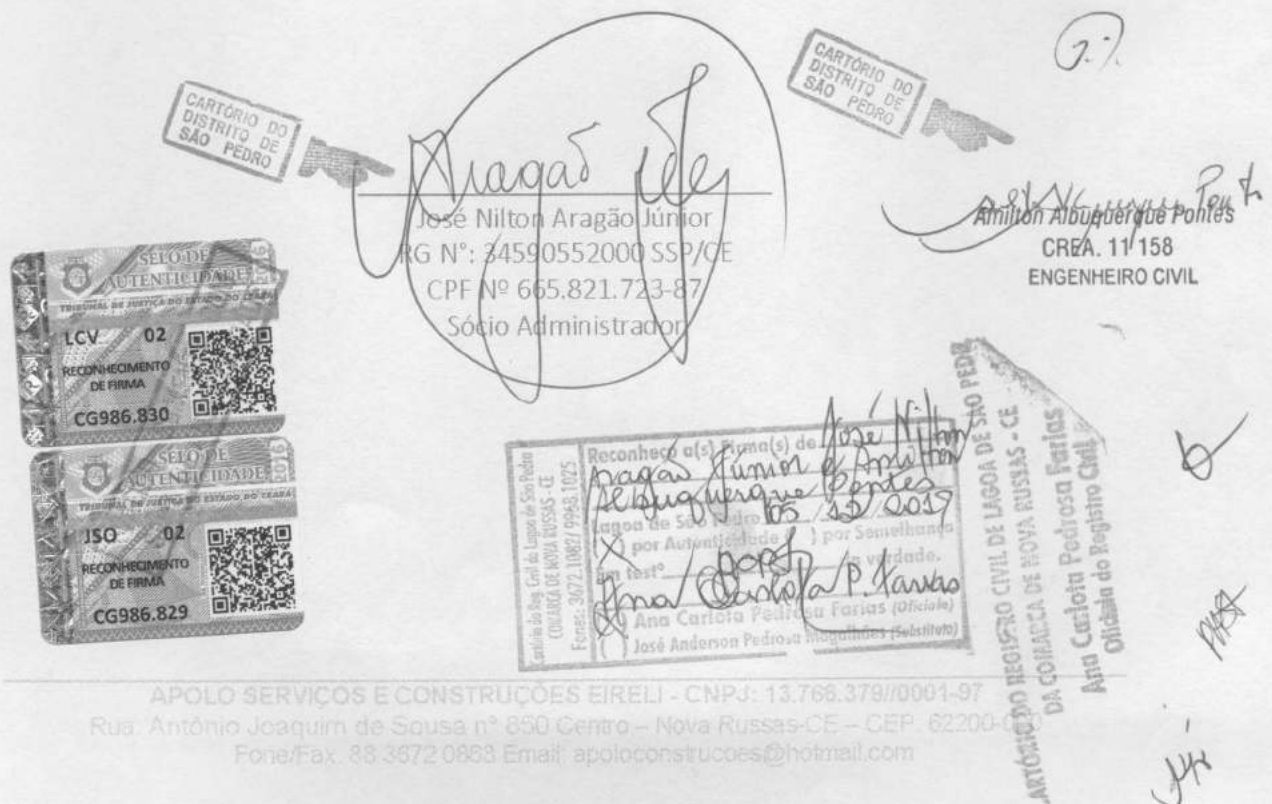 CARTÓRIO DO
DISTRITO DE
SÃO PEDRO
CARTÓRIO DO
DISTRITO DE
SÃO PEDRO
Aragão
José Nilton Aragão Júnior
RG N°: 34590552000 SSP/CE
CPF Nº 665.821.723-87
Sócio Administrador
Amilton Albuquerque Pontes
CREA. 11 158
ENGENHEIRO CIVIL
SELO DE
AUTENTICIDADE
TRIBUNAL DE JUSTIÇA DO ESTADO DO CEARÁ
LCV 02
RECONHECIMENTO
DE FIRMA
CG986.830
SELO DE
AUTENTICIDADE
2016
TRIBUNAL DE JUSTIÇA DO ESTADO DO CEARÁ
JSO 02
RECONHECIMENTO
DE FIRMA
CG986.829
Cartório do Reg. Civil de Lagoa de São Pedro
COMARCA DE NOVA RUSSAS - CE
Fones: 3672.1082/ 9968.1025
Reconheço a(s) Firma(s) de José Nilton
Aragão Júnior e Amilton
Albuquerque Pontes
Lagoa de São Pedro 05 / 12 / 2019
(X) por Autenticidade ( ) por Semelhança
Em testº da verdade.
Ana Carlota P. Farias
(X) Ana Carlota Pedrosa Farias (Oficiala)
( ) José Anderson Pedrosa Magalhães (Substituto)
CARTÓRIO DO REGISTRO CIVIL DE LAGOA DE SÃO PEDRO
DA COMARCA DE NOVA RUSSAS - CE
Ana Carlota Pedrosa Farias
Oficiala do Registro Civil
APOLO SERVIÇOS E CONSTRUÇÕES EIRELI - CNPJ: 13.766.379//0001-97
Rua: Antônio Joaquim de Sousa n° 850 Centro – Nova Russas-CE – CEP. 62200-
Fone/Fax. 88 3672 0863 Email: apoloconstrucoes@hotmail.com